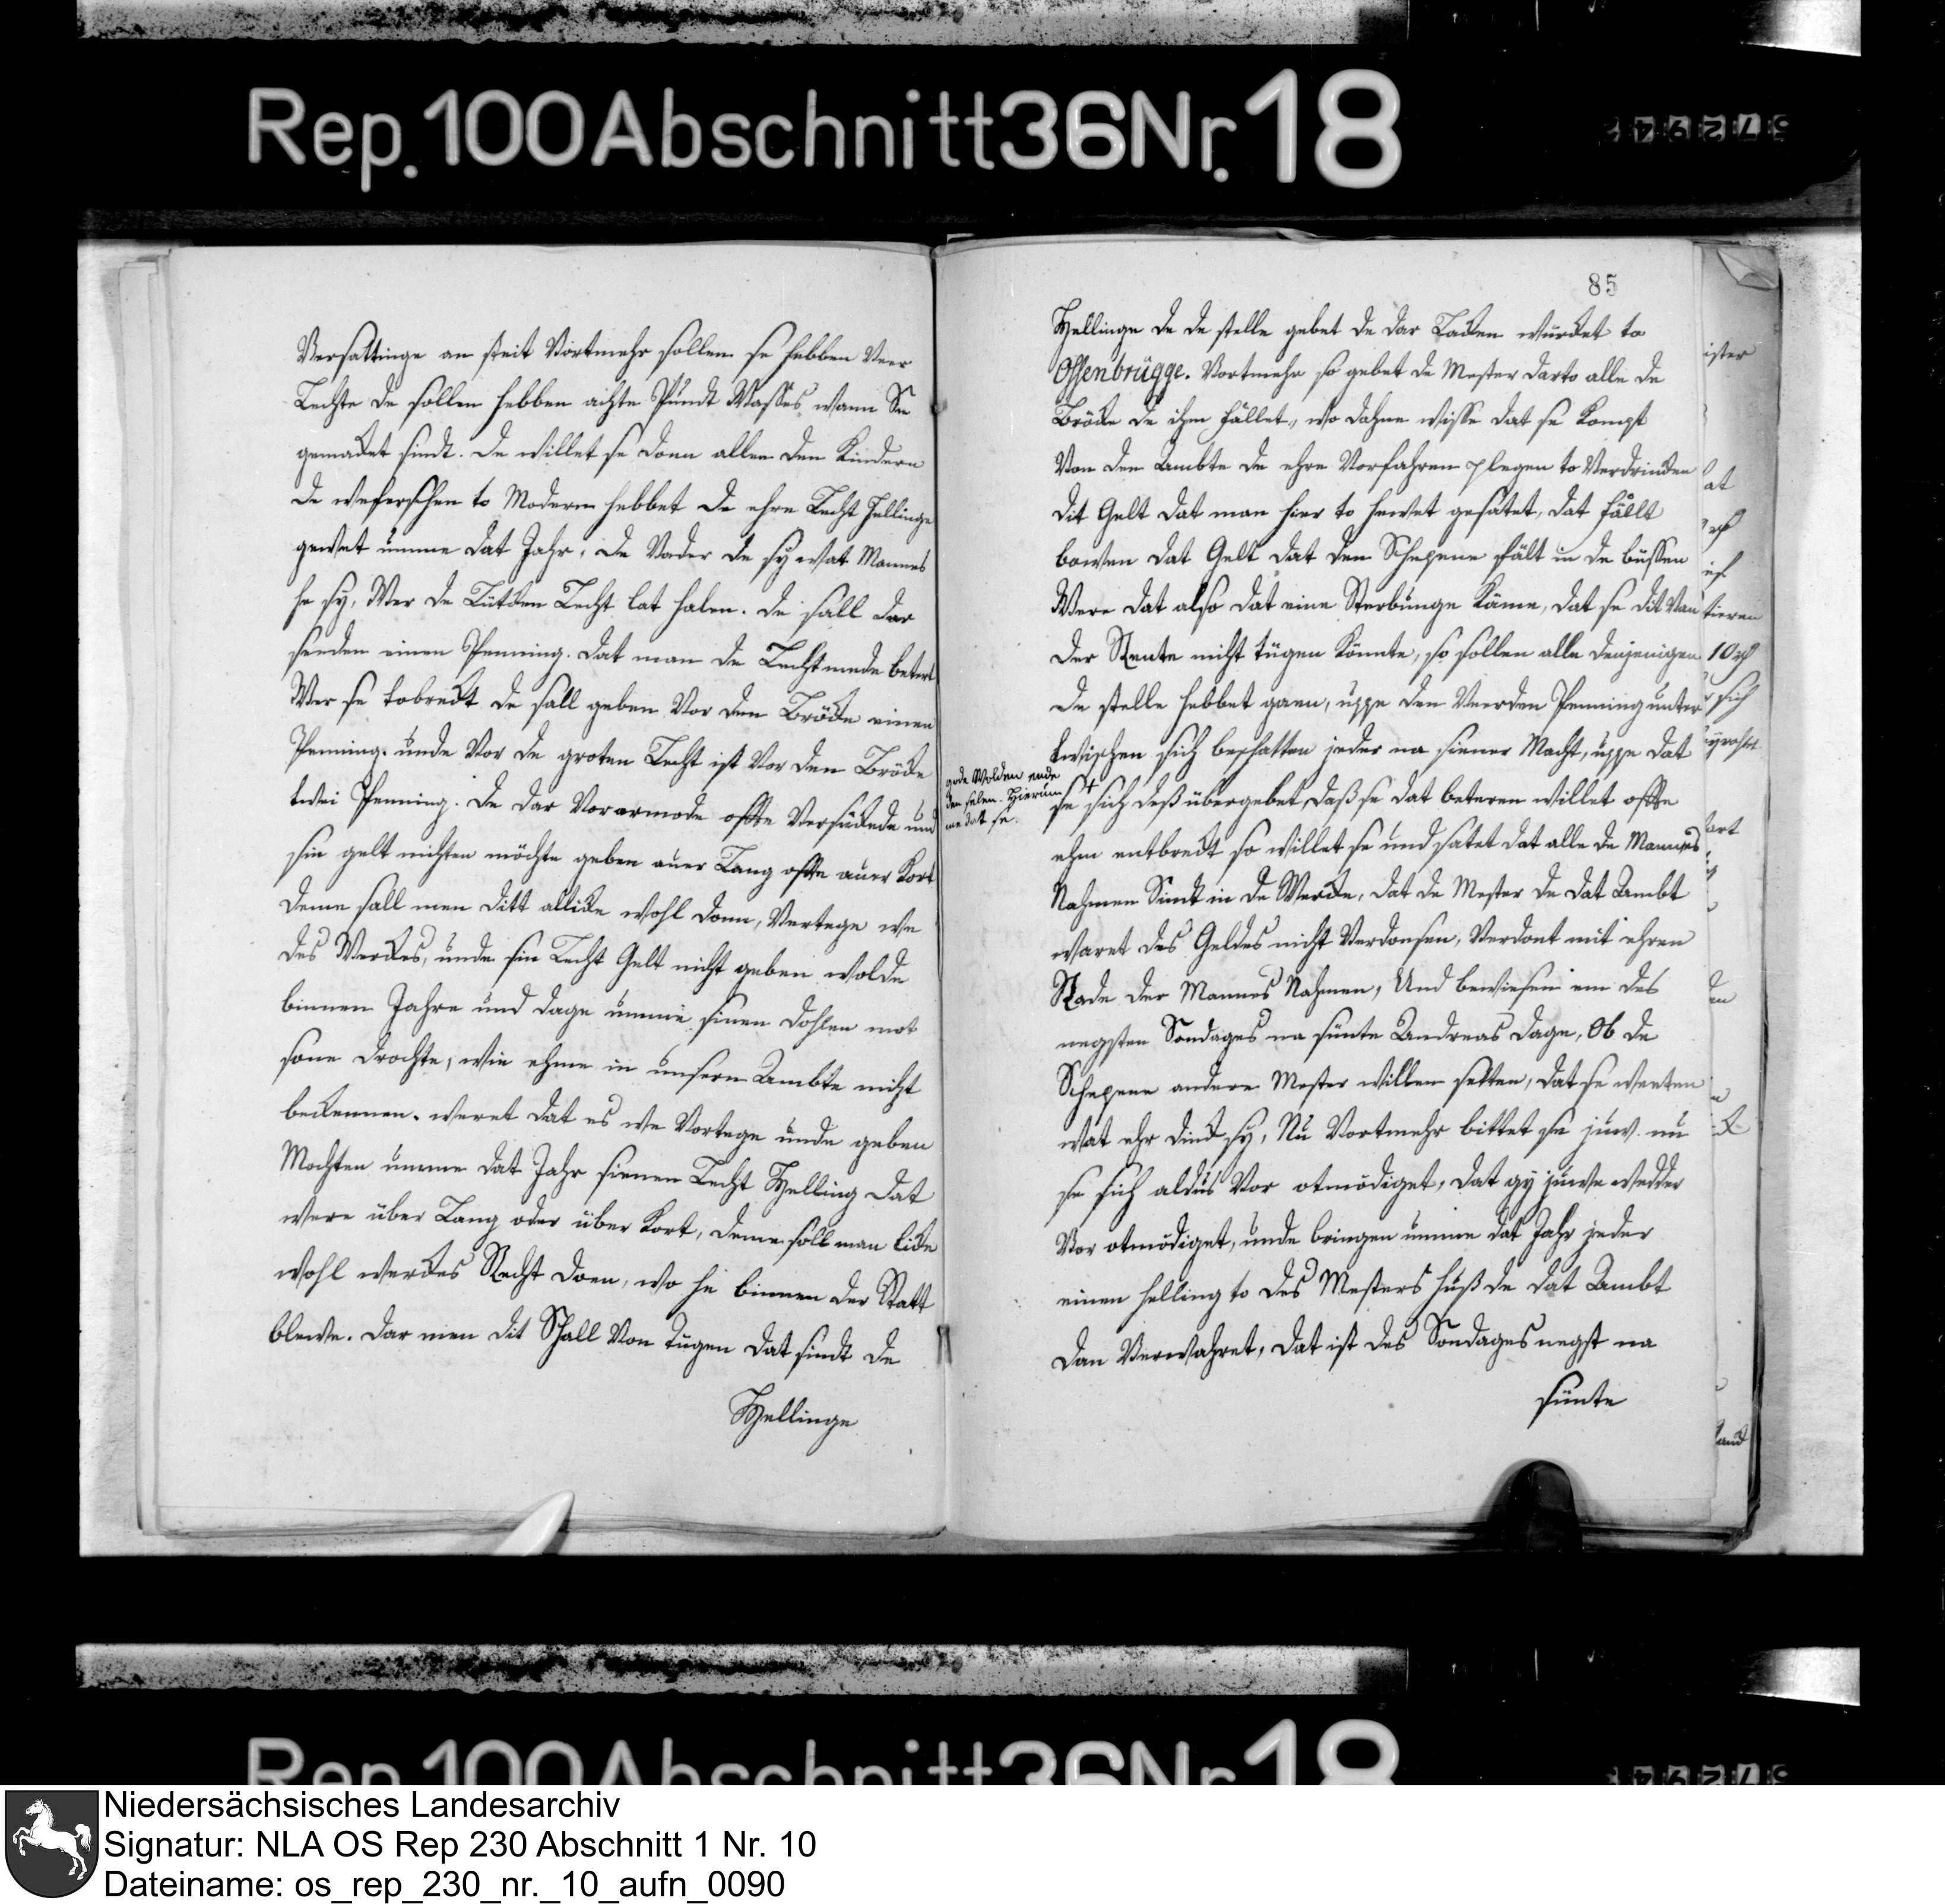 Rep. 100 Abschnitt 36 Nr. 18
Versaltinge an steit Vortmehr sollen se hebben Veer
Lechte de sollen hebben achte Pundt Wasses, wann Se
gemaket sindt. De willet se donn allen den Kindern
de weferschen to Modern hebbet de ehre Lecht Hellinge
gevet umme dat Jahr, de Vader de sy wat Mannes
he sy, Wer de Lütken Lecht lat halen. De sall dar
senden einen Penning. Dat man de Lecht mede betert
Wer se tobreckt de sall geben Vor den Bröcke einen
Penning. unde Vor de groten Lecht ist Vor den Bröcke
twei Penning. De dar Vorarmode offte Versückede und
sin gelt nichten möchte geben auer Lang offte auer Kort
deme sall men ditt allicke wohl donn, Vertege we
des Werckes, unde sin Lecht Gelt nicht geben wolde
binnen Jahre und dage umme sinen dohlen mot
sone drochte, wie ehme in unsern Ambte nicht
bekennen. weret dat es we Vortege unde geben
Mochten umme dat Jahr sienen Lecht Helling dat
were über Lang oder über Kort, deme soll man licke
wohl werckes Recht doen, wo he binnen der Statt
blewe. Dar men dit Schall Von tügen dat sindt de
Hellinge
85
Hellinge de de stelle gebet de dar Lacken würcket to
Ossenbrügge. Vortmehr so gebet de Mester darto alle de
Bröcke de ihm fället, wo dahne wisse dat se kompt
Von den Ambte de ehre Vorfahren plegen to Verdrincken
dit Gelt dat man hier to hewet gesatet, dat fällt
bowen dat Gelt dat den Schepene fält in de büssen
Were dat also dat eine Sterbunge Käme, dat se dit Van
der Rente nicht tügen Könnte, so sollen alle denjenigen
de stelle hebbet gaen, uppe den Veerden Penning unter
twischen sich beschatten jeder na siener Macht, uppe dat
gode Wolden ende
den selen. Hierum
me dat se.
se + sich deß übergebet, daß se dat beteren willet offte
ehm entbreckt so willet se und satet dat alle de Mannes
Nahmen Sindt in de Wercke, dat de Mester de dat Ambt
waret des Geldes nicht Verdonsen, Verdont mit ehren
Rade der Mannes Nahmen, Und bewiesen em des
negsten Sondages na sünte Andreas dage, Ob de
Schepene andere Mester willen setten, dat se weeten
wat ehr dinck sy, Nu Vortmehr bittet se juw. nu
se sich aldus Vor otmödiget, dat gy juwe wedder
Vor otmödiget, unde bringen umme dat Jahr jeder
einen helling to des Mesters huß de dat Ambt
dan Verwahret, dat ist des Sondages negst na
sünte
ister
at
tieren
10
sich
art
en
and
Rep. 100 Abschnitt 36 Nr. 18
Niedersächsisches Landesarchiv
Signatur: NLA OS Rep 230 Abschnitt 1 Nr. 10
Dateiname: os_rep_230_nr._10_aufn_0090